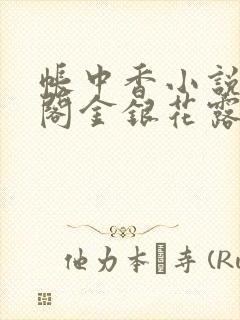 帳中香小說
閣金銀花露
他力本 寺 (Ru